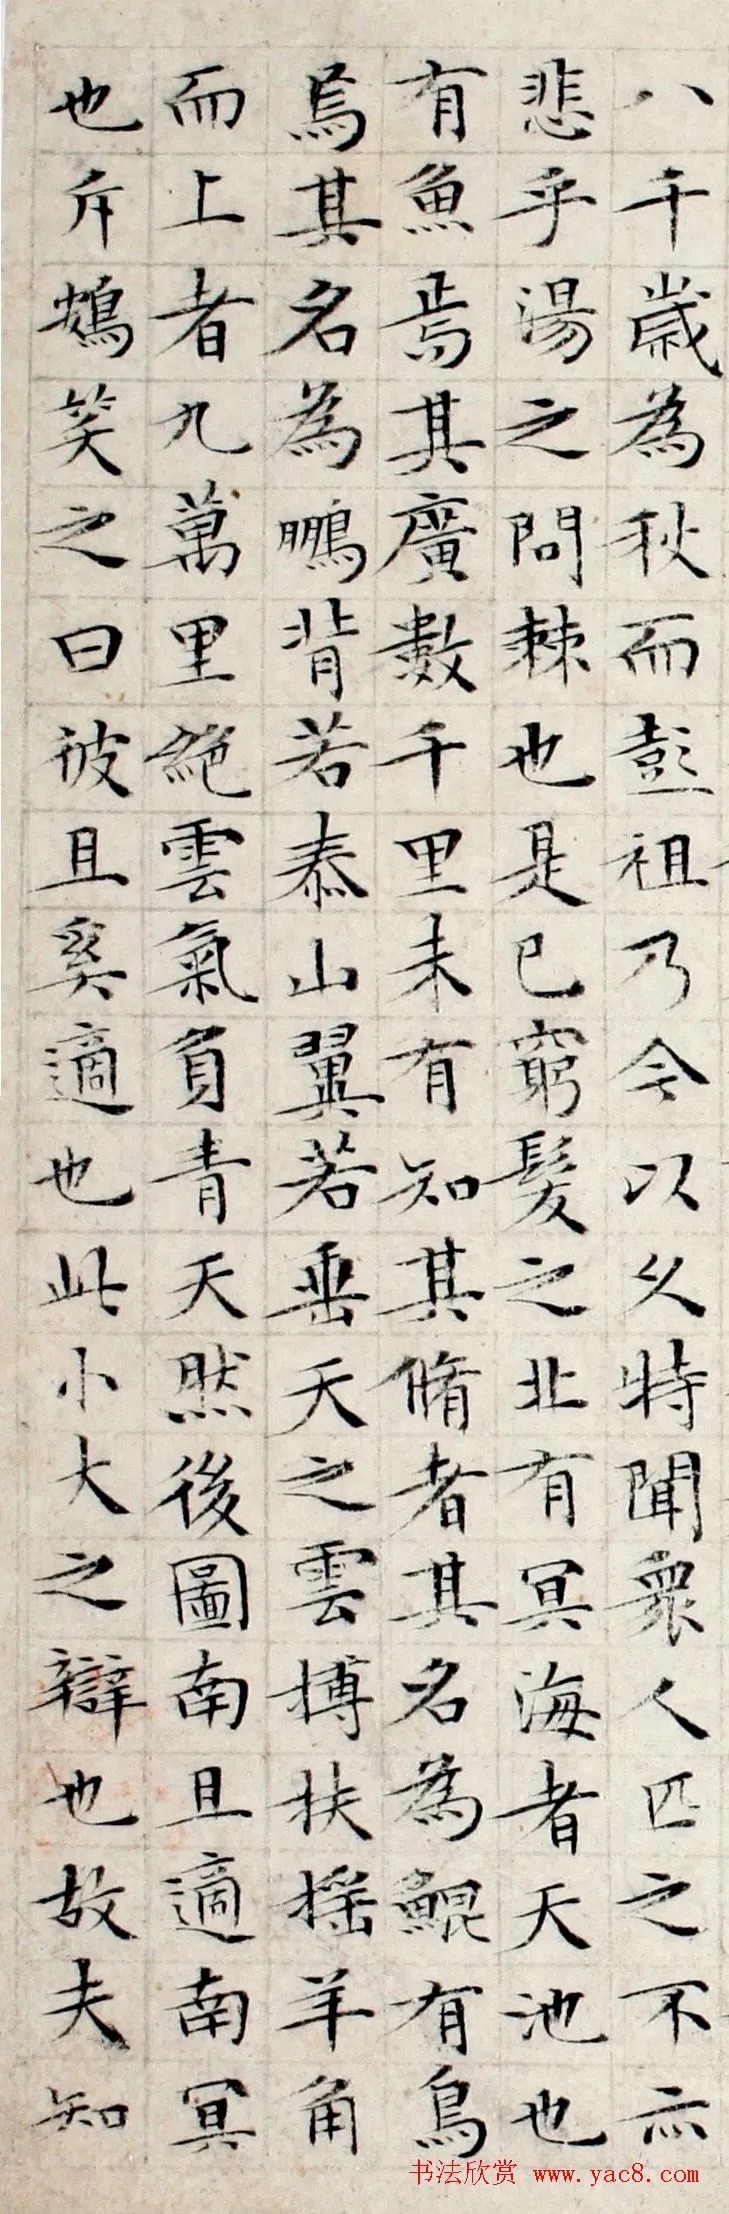 八千歲為秋而彭祖乃今以久特聞衆人匹之不亦
悲乎湯之問棘也是已窮髮之北有冥海者天池也
有魚焉其廣數千里未有知其脩者其名為鯤有鳥
焉其名為鵬背若泰山翼若垂天之雲搏扶搖羊角
而上者九萬里絶雲氣負青天然後圖南且適南冥
也斥鴳笑之曰彼且奚適也此小大之辯也故夫知
书法欣赏 www.yac8.com